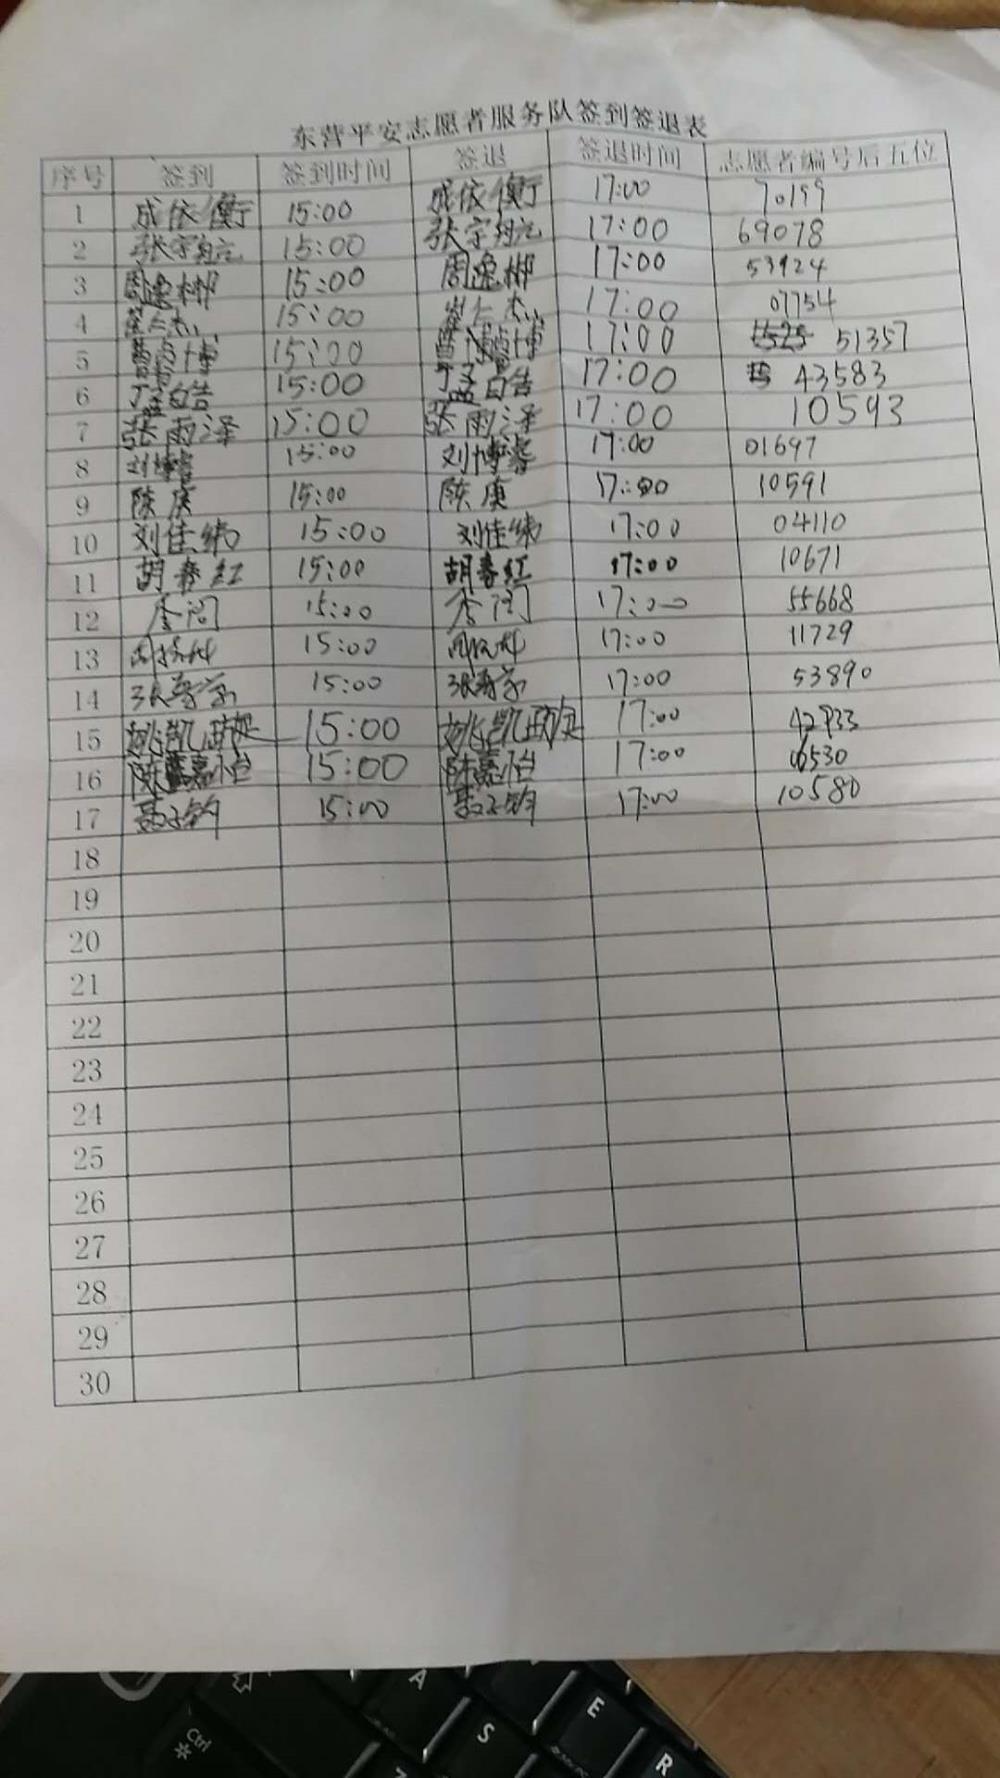 东营平安志愿者服务队签到签退表
序号 签到 签到时间 签退 签退时间 志愿者编号后五位
1 成依衡 15:00 成依衡 17:00 70199
2 张宇翔 15:00 张宇翔 17:00 69078
3 周逸彬 15:00 周逸彬 17:00 53924
4 崔仁杰 15:00 崔仁杰 17:00 07754
5 15:00 17:00 51357
6 丁孟皓 15:00 丁孟皓 17:00 43583
7 张雨泽 15:00 张雨泽 17:00 10593
8 刘博睿 15:00 刘博睿 17:00 01697
9 陈庚 15:00 陈庚 17:00 10591
10 刘佳纬 15:00 刘佳纬 17:00 04110
11 胡春红 15:00 胡春红 17:00 10671
12 15:00 17:00 55668
13 15:00 17:00 11729
14 张 15:00 张 17:00 53890
15 姚凯 15:00 姚凯 17:00 42933
16 陈嘉怡 15:00 陈嘉怡 17:00 06530
17 聂子钧 15:00 聂子钧 17:00 10580
18
19
20
21
22
23
24
25
26
27
28
29
30
A
S
E
R
Ctrl